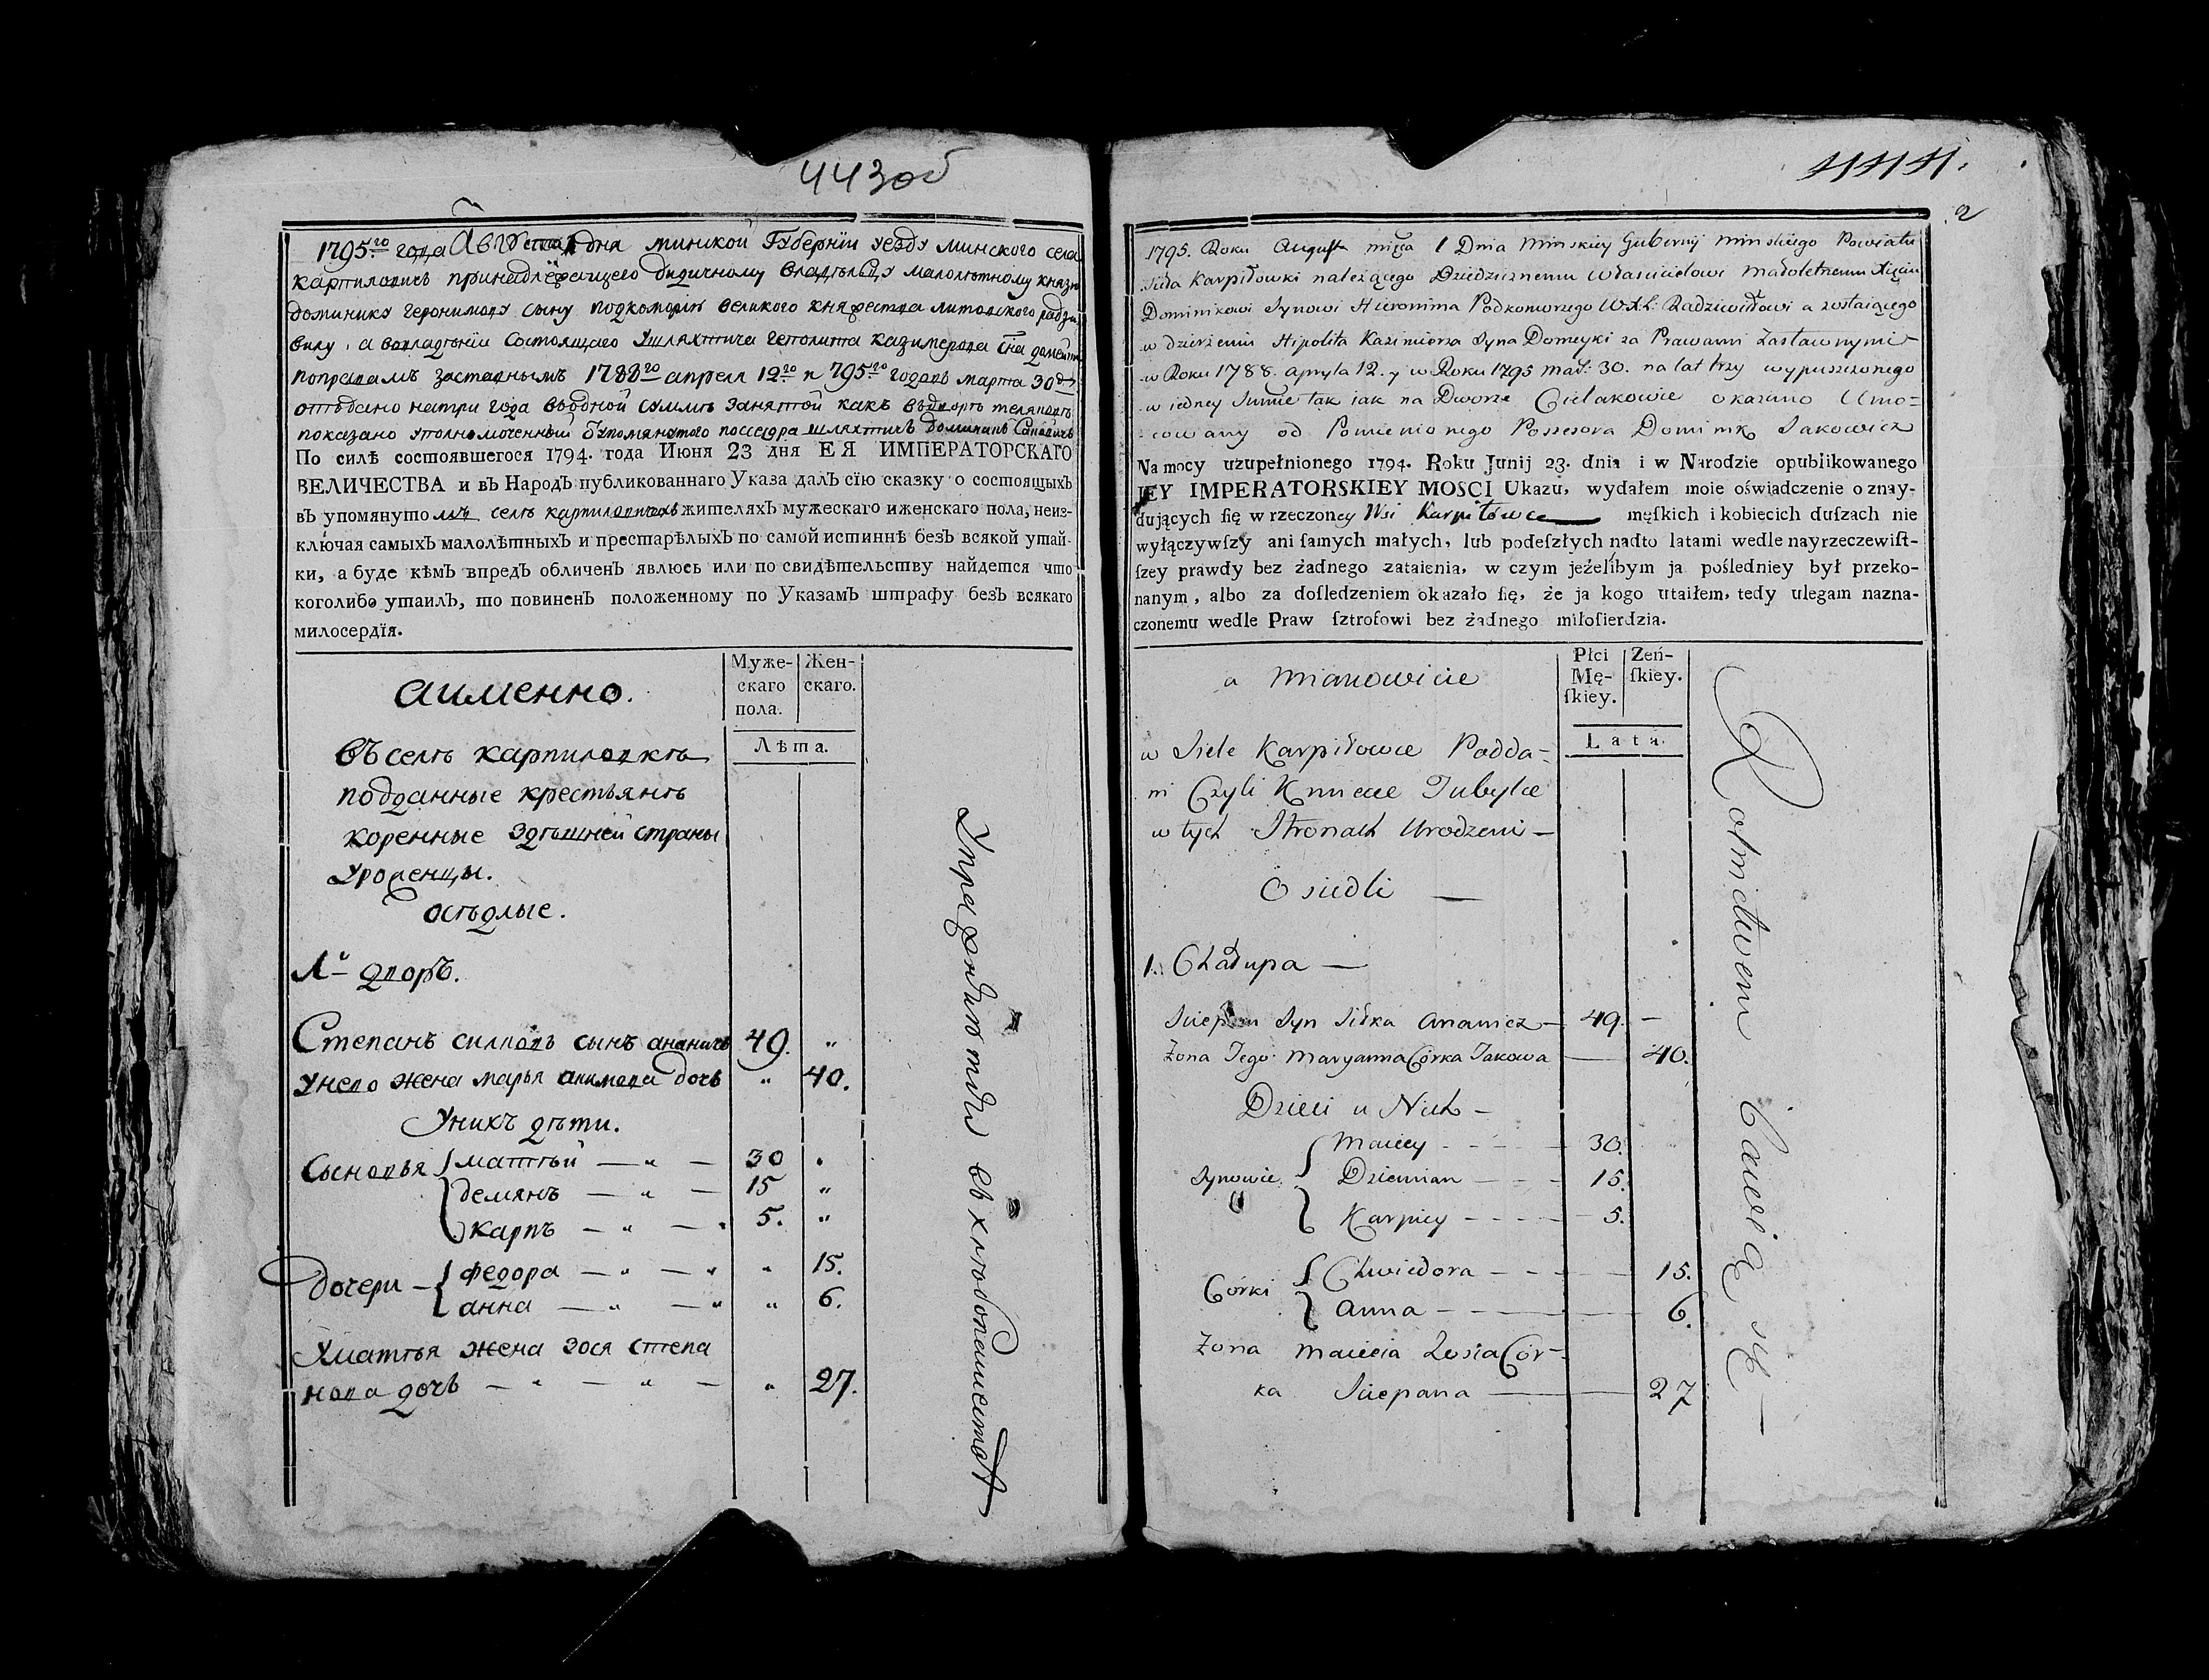 443об
1795го года Августа 1 дня минской Губернїи уезду минского села
карпиловичъ принадлежащего дидичному владельцу малолѣтному князю
доминику геронимову сыну подкоморiя великого княжества литовского радзи
вилу, а вовладѣнїи состоящаго Ушляхтича геполита казимерова сна домейки
поправамъ заставнымъ 1788го апреля 12го и 795го годовъ марта 30
отъдано натри года въодной сумме занятой какъ въдворѣ теляковѣ
показано уполномоченный отупомянутого поссесора шляхтичъ доминикъ
По силѣ состоявшегося 1794. года Июня 23 дня ЕЯ ИМПЕРАТОРСКАГО
ВЕЛИЧЕСТВА и въ Народъ публикованнаго Указа далъ сїю сказку о состоящыхъ
въ упомянутомъ селѣ карпиловичахъ жителяхъ мужескаго иженскаго пола, неиз-
ключая самыхъ малолѣтныхъ и престарѣлыхъ по самой истиннѣ безъ всякой утай-
ки, а буде кѣмъ впредъ обличенъ явлюсь или по свидѣтельству найдется что
коголибо утаилъ, то повиненъ положенному по Указамъ штрафу безъ всякаго
милосердїя.
аименно.
Муже-
скаго
пола.
Жен-
скаго.
Лѣта.
въ селѣ карпиловкѣ
подданные крестьянѣ
коренные здѣшней страны
уроженцы.
осѣдлые.
1й дворъ.
Степанъ силковъ сынъ ананичъ 49. "
унего жена марья акимова дочь " 40.
Унихъ дѣти.
Сыновья { матѣй — " — 30 "
демянъ — " — 15 "
карпъ — " — " 5. "
дочери — { федора — " — " " 15.
анна — " — " " 6.
Уматѣя жена зося степа
нова дочь — " — " — " 27.
Упражняются въ хлебопашествѣ
444.
2
1795. Roku August mięca 1 Dnia Minskiey Gubernij minskiego Powiatu
Sioła Karpiłowki należącego Dziedzicznemu Właścicielowi małoletniemu Xięciu
Dominikowi Synowi Hieronima Podkomorzego W.X.L. Radziwiłłowi a zostaiącego
w dzierżeniu Hipolita Kazimierza Syna Domeyki za Prawami Zastawnymi
w Roku 1788. apryla 12. y w Roku 1795 mar. 30. na lat trzy wypuszczonego
w iedney Summie tak iak na Dworze Cielakowie okazano Umo=
cowany od Pomienionego Possesora Dominik Sakowicz
Na mocy uzupełnionego 1794. Roku Junij 23. dnia i w Narodzie opublikowanego
JEY IMPERATORSKIEY MOSCI Ukazu, wydałem moie oświadczenie o znay-
dujących ſię w rzeczoney Wsi Karpiłowce męſkich i kobiecich duſzach nie
wyłączywſzy ani ſamych małych, lub podeſzłych nadto latami wedle nayrzeczewiſt-
ſzey prawdy bez żadnego zataienia, w czym jeżeliſbym ja poſledniey był przeko-
nanym, albo za doſledzeniem okazało ſię, że ja kogo utaiłem, tedy ulegam nazna-
czonemu wedle Praw ſztrofowi bez żadnego miłoſierdzia.
a mianowicie
Płci
Mę-
ſkiey.
Zeń-
ſkiey.
Lata.
w Siele Karpiłowce Podda=
ni Czyli Kmiecie Tubylce
w tych Stronach Urodzeni —
Osiedli —
1. Chałupa —
Sciepan Syn Siłka Ananicz — 49. —
Żona Jego Maryanna Córka Jakowa — 40.
Dzieci u Nich —
Synowie { Maciey - - - 30.
Dziemian - - - 15.
Karpiey - - - - 5.
Córki { Chwiedora - - - 15.
Anna - - - 6.
Żona Macieia Zosia Cór-
ka Sciepana — 27
Rolnictwem bawią się —